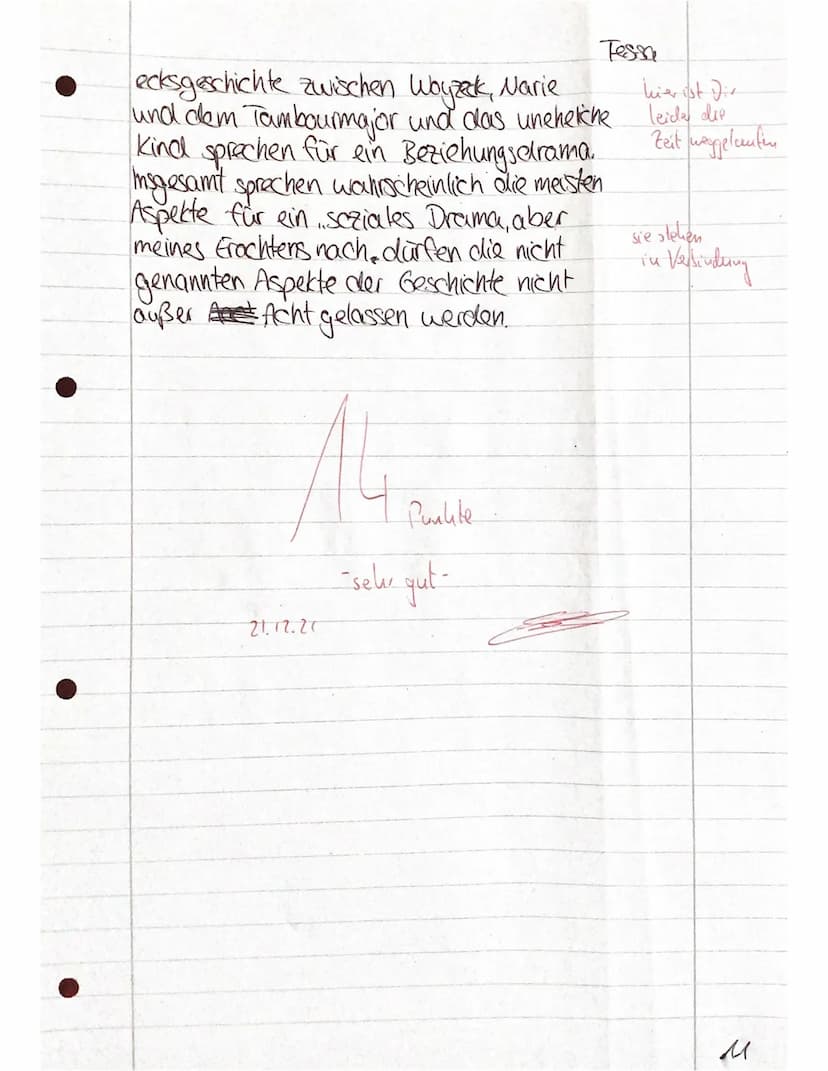 Tessa
ecksgeschichte zwischen Woyzek, Marie
und dem Tambourmajor und das uneheliche
Kind sprechen für ein Beziehungsdrama.
Insgesamt sprechen wahrscheinlich die meisten
Aspekte für ein „soziales Drama, aber
meines Erachtens nach, dürfen die nicht
genannten Aspekte der Geschichte nicht
außer Acht gelassen werden.
hier ist Dir
leider die
Zeit weggelaufen
sie stehen
in Verbindung
14 Punkte
-sehr gut-
21.12.21
11